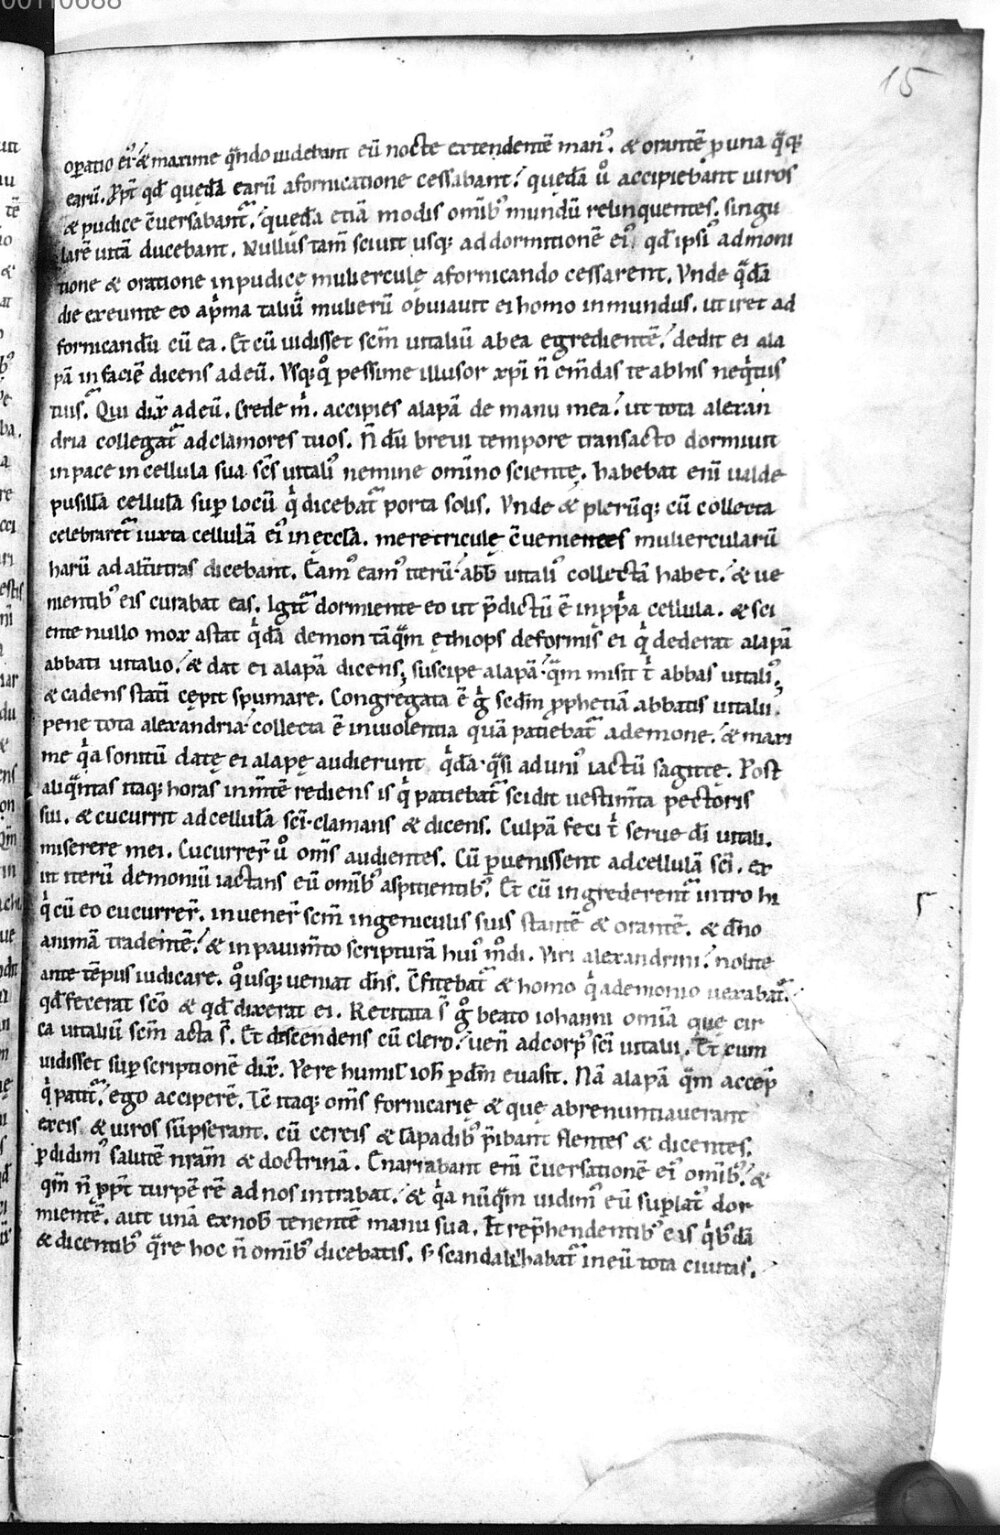 00110688
15
oꝑatio eiꝰ. & maxime qͣndo uidebant eū nocte extendentē manꝰ. & orantē ꝓ una qͣqꝫ
earū. Ꝓpt̄ qđ quedā earū afornicatione cessabant. quedā ů accipiebant uiros
& pudice c̄uersabant̄. quedā etiā modis om̄ibꝰ mundū relinquentes. singu
larē uitā ducebant. Nullus tam̄ sciuit usqꝫ ad dormitionē eiꝰ. qđ ipsiꝰ admoni
tione & oratione inpudicę muliercule afornicando cessarent. Vnde qͣdā
die exeunte eo a pͥma taliū mulierū obuiauit ei homo inmundus. ut iret ad
fornicandū cū ea. Et cū uidisset scm̄ uitaliū ab ea egredientē. dedit ei ala
pā in faciē dicens ad eū. Vsqꝫqͦ pessime illusor xp̄i n̄ em̄das te ab his neqͥtiis
tuis. Qui dix̄ ad eū. Crede m̄. accipies alapā de manu mea. ut tota alexan
dria collegat̄ ad clamores tuos. N̄ dū breui tempore transacto dormiuit
in pace in cellula sua scs̄ uitaliꝰ nemine om̄ino sciente. habebat eni᷑ ualde
pusillā cellulā suꝑ locū qͥ dicebat̄ porta solis. Vnde & plerūqꝫ cū collecta
celebraret̄ iuxta cellulā eiꝰ in eccl̄a. meretricule c̄uenientes muliercularū
harū ad alt̄utras dicebant. Eamꝰ eamꝰ iterū. abb̄ uitaliꝰ collectā habet. & ue
nientibꝰ eis curabat eas. Igit̄ dormiente eo ut p̄dictū ē in ꝓpͥa cellula. & sci
ente nullo mox astat qͥdā demon tāqͣm ęthiops deformis ei qͥ dederat alapā
abbati uitalio. & dat ei alapā dicens; suscipe alapā. qͣm misit tͥ abbas uitaliꝰ;
& cadens statī cępit spumare. Congregata ē gͦ scđm ꝓphetiā abbatis uitalii.
pene tota alexandria. collecta ē in uiolentia quā patiebat̄ ademone. & maxi
me qͥa sonitū datę ei alapę audierunt qͥdā. qͣsi ad uniꝰ iactū sagittę. Post
aliqͣntas itaqꝫ horas in m̄tē rediens is qͥ patiebat̄ scidit uestim̄ta pectoris
sui. & cucurrit ad cellulā sci᷑. clamans & dicens. Culpā feci tͥ serue di᷑ uitali.
miserere mei. Cucurrer̄ ů om̄s audientes. Cū ꝑuenissent ad cellulā sci᷑. ex
iit iterū demoniū iactans eū om̄ibꝰ aspitientibꝰ. Et cū ingrederent̄ intro hi
qͥ cū eo cucurrer̄. inuener̄ scm̄ ingeniculis suis stantē & orantē. & dn̄o
animā tradentē. & in pauim̄to scripturā huiꝰ mͦdi. Viri alexandrini. nolite
ante tēpus iudicare. qͦusqꝫ ueniat dn̄s. C̄fitebat̄ & homo qͥ ademonio uexabat̄.
qđ fecerat sc̄o & qđ dixerat ei. Recitata s̄ gͦ beato iohanni omīa que cir
ca uitaliū scm̄ acta s̄. Et descendens cū clero. uen̄ ad corpꝰ sci᷑ uitalii. Et cum
uidisset suꝑscriptionē dix̄. Vere humil̄ ioh̄ ꝑ dm̄ euasit. Nā alapā qͣm accep̄
qͥ patit̄. ego acciperē. Tc̄ itaqꝫ om̄s fornicarię & que abrenuntiauerant
ex eis & uiros sūpserant. cū cereis & lāpadibꝰ p̄ibant flentes & dicentes.
ꝑdidimꝰ salutē nr̄am & doctrinā. Enarrabant eni᷑ c̄uersationē eiꝰ om̄ibꝰ. &
qm̄ n̄ ꝓpt̄ turpē rē ad nos intrabat. & qͥa nūqͣm uidimꝰ eū sup̄ latꝰ dor
mientē. aut unā ex nob̄ tenentē manu sua. Et rep̄hendentibꝰ eis qͥbꝰdā
& dicentibꝰ qͣre hoc n̄ om̄ibꝰ dicebatis. s; scandalizabat̄ in eū tota ciuitas.